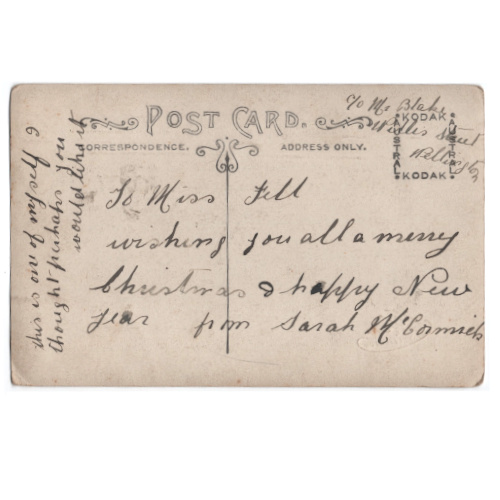 To Mr Blake
Street
Wellington
POST CARD.
CORRESPONDENCE. ADDRESS ONLY.
KODAK
AUSTRAL
AUSTRAL
KODAK
To Miss Fell
wishing you all a merry
Christmas & happy New
year from Sarah McCormick
this is one of myself &
thought perhaps you
would like it